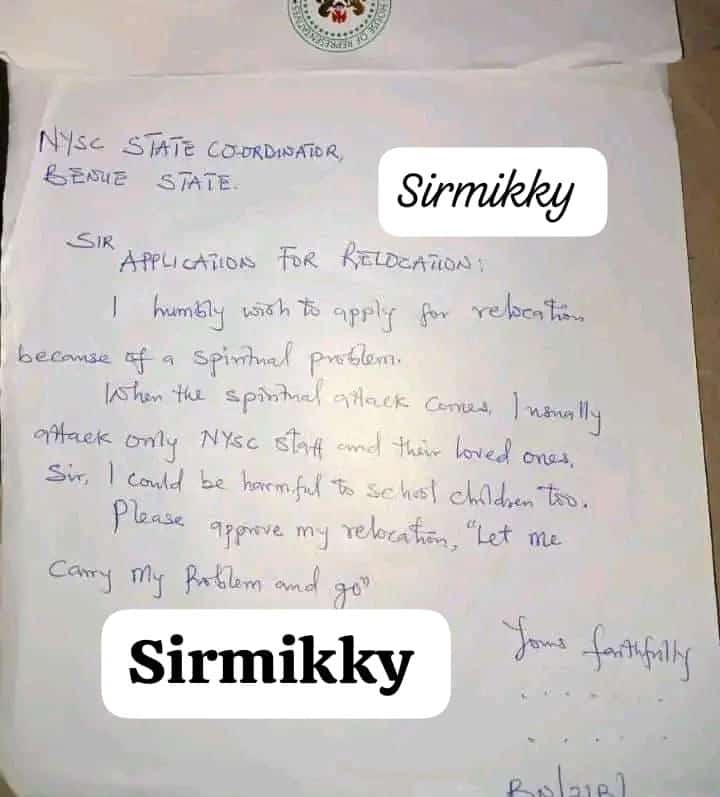 HOUSE OF REPRESENTATIVES
NYSC STATE CO-ORDINATOR,
BENUE STATE.
Sirmikky
SIR
APPLICATION FOR RELOCATION:
I humbly wish to apply for relocation
because of a spiritual problem.
When the spiritual attack comes, I usually
attack only NYSC staff and their loved ones.
Sir, I could be harmful to school children too.
Please approve my relocation, "Let me
carry my Problem and go"
Sirmikky
Yours faithfully